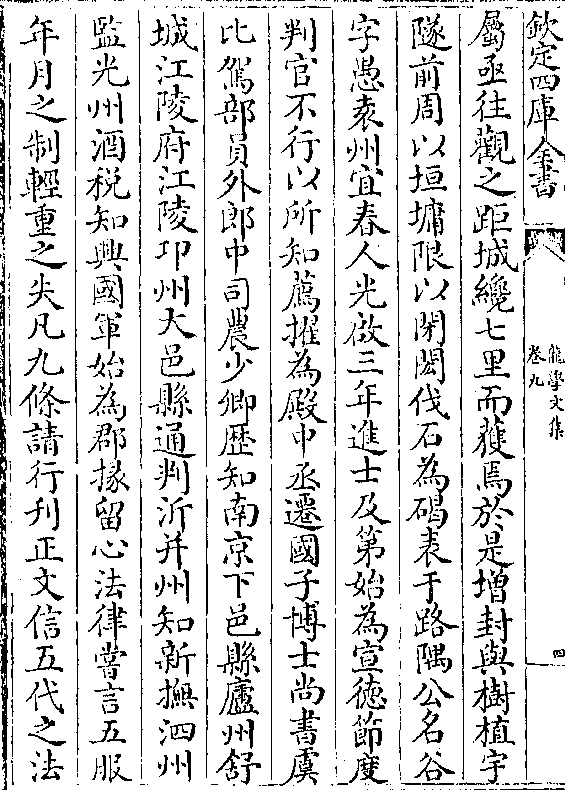 欽定四庫全書
龍學文集
卷九
四
屬亟往觀之距城纔七里而獲焉於是增封與樹植宇
隧前周以垣墉限以閉閎伐石為碣表于路隅公名谷
字愚袁州宜春人光啟三年進士及第始為宣德節度
判官不行以所知薦擢為殿中丞遷國子博士尚書虞
比駕部員外郎中司農少卿歴知南京下邑縣廬州舒
城江陵府江陵卭州大邑縣通判沂并州知新撫泗州
監光州酒税知興國軍始為郡掾留心法律嘗言五服
年月之制輕重之失凡九條請行刋正文信五代之法